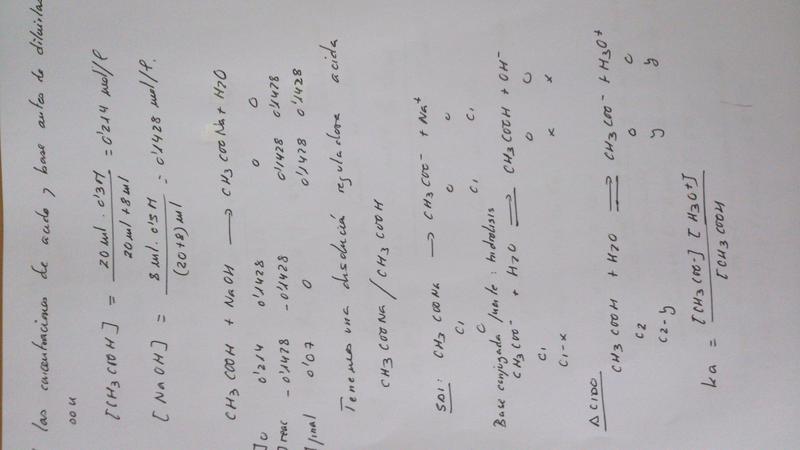 las concentraciones de acido y base antes de diluirlas
son
[CH3COOH] = 20 ml · 0'3M / 20 ml + 8 ml = 0'214 mol/l
[NaOH] = 8 ml · 0'5M / (20+8) ml = 0'1428 mol/l.
CH3COOH + NaOH → CH3COONa + H2O
]0 0'214 0'1428 0 0
] reac -0'1428 -0'1428 0'1428 0'1428
] final 0'07 0 0'1428 0'1428
Tenemos una disolución reguladora acida
CH3COONa / CH3COOH
SAL: CH3COONa → CH3COO- + Na+
C1 0 0
0 C1 C1
Base conjugada fuerte: hidrolisis
CH3COO- + H2O ⇌ CH3COOH + OH-
C1 0 0
C1-x x x
ACIDO
CH3COOH + H2O ⇌ CH3COO- + H3O+
C2 0 0
C2-y y y
ka = [CH3COO-] [H3O+] / [CH3COOH